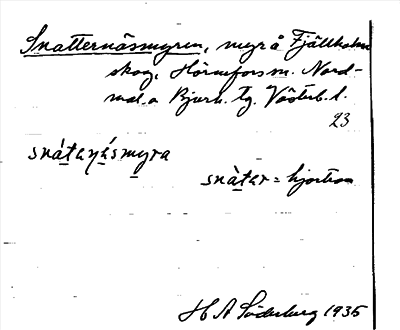 Snatternäsmyren, myr å Fjällholm
skog, Hörnefors sn. Nord-
mal. o Bjurh. tg. Västerb. l.
23
snátaṇä́smyra
snàtər = hjortron
H A Söderberg 1935